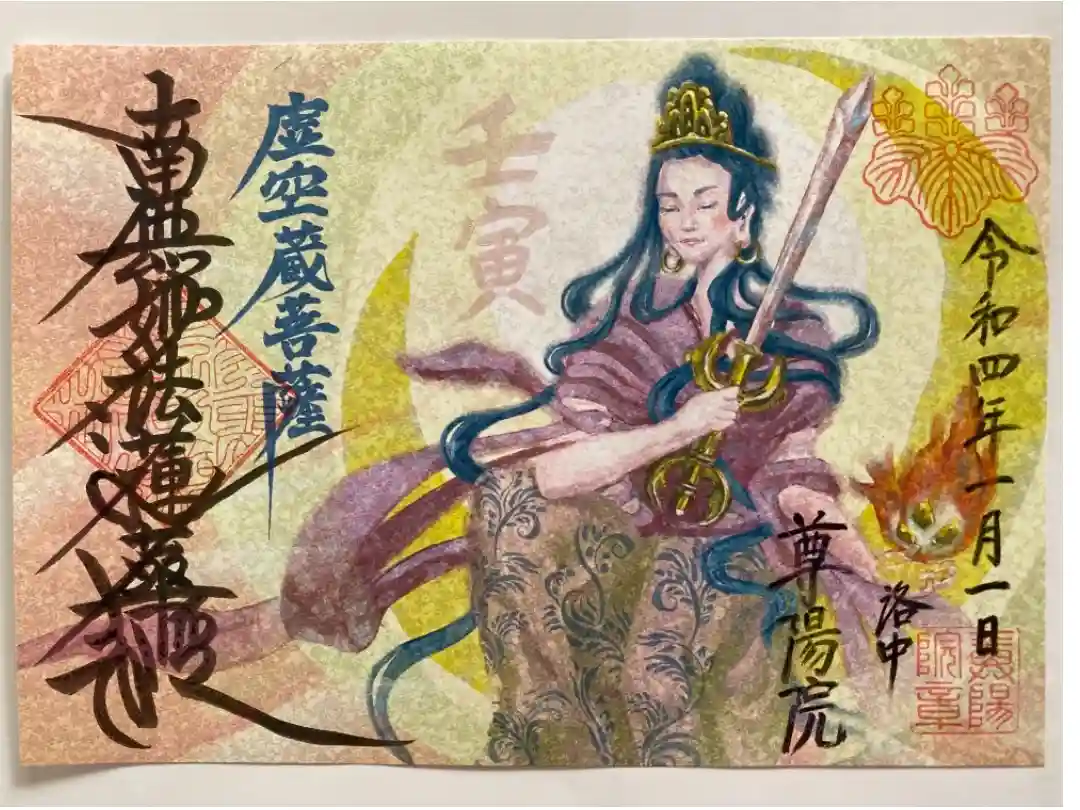 令和四年一月一日
洛中
尊陽院
尊陽院章
壬寅
虚空蔵菩薩
南無妙法蓮華経